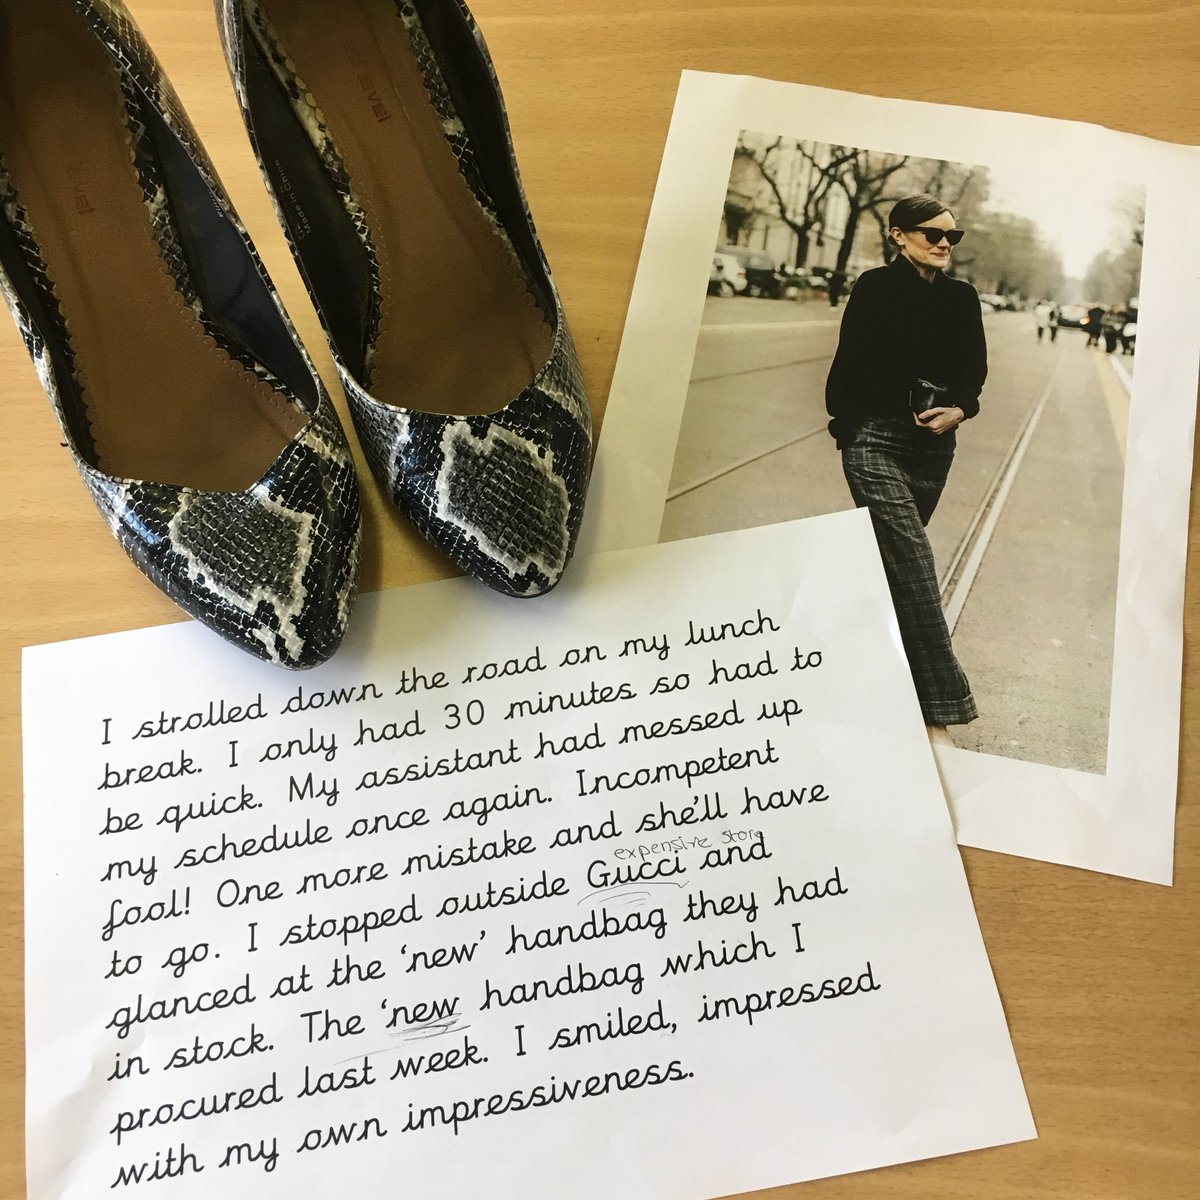 level
level
Made in China
I strolled down the road on my lunch
break. I only had 30 minutes so had to
be quick. My assistant had messed up
my schedule once again. Incompetent
fool! One more mistake and she'll have
expensive store
to go. I stopped outside Gucci and
glanced at the 'new' handbag they had
in stock. The 'new handbag which I
procured last week. I smiled, impressed
with my own impressiveness.